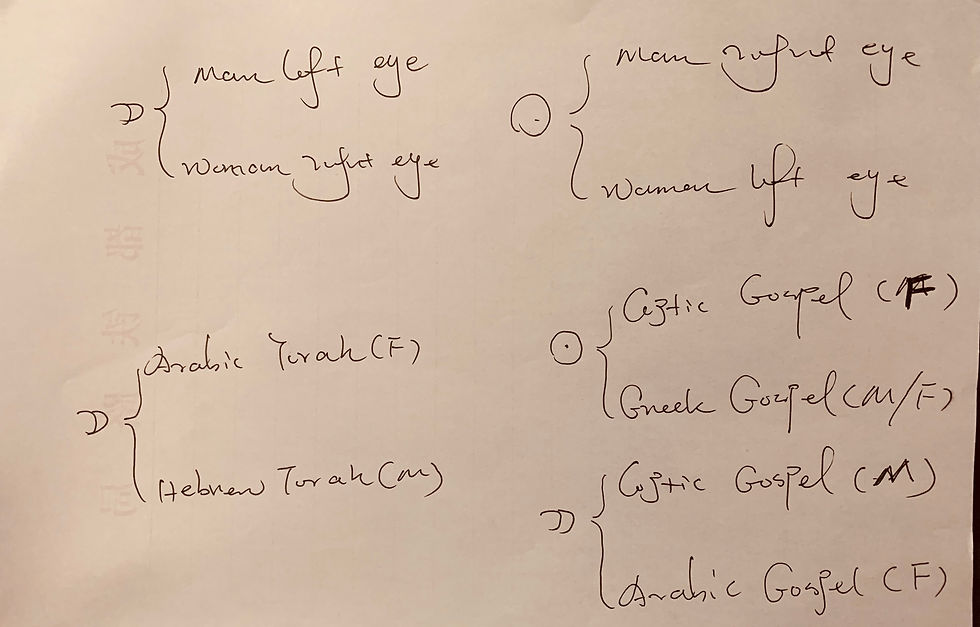 ☽ { Man left eye
Woman right eye
☉ { Man right eye
Women left eye
☽ { Arabic Torah (F)
Hebrew Torah (M)
☉ { Coptic Gospel (F)
Greek Gospel (M/F)
☽ { Coptic Gospel (M)
Arabic Gospel (F)